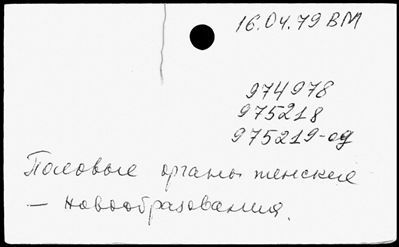 16.04.79 ВМ
974978
975218
975219-од
Половые органы женские
— Новообразования.